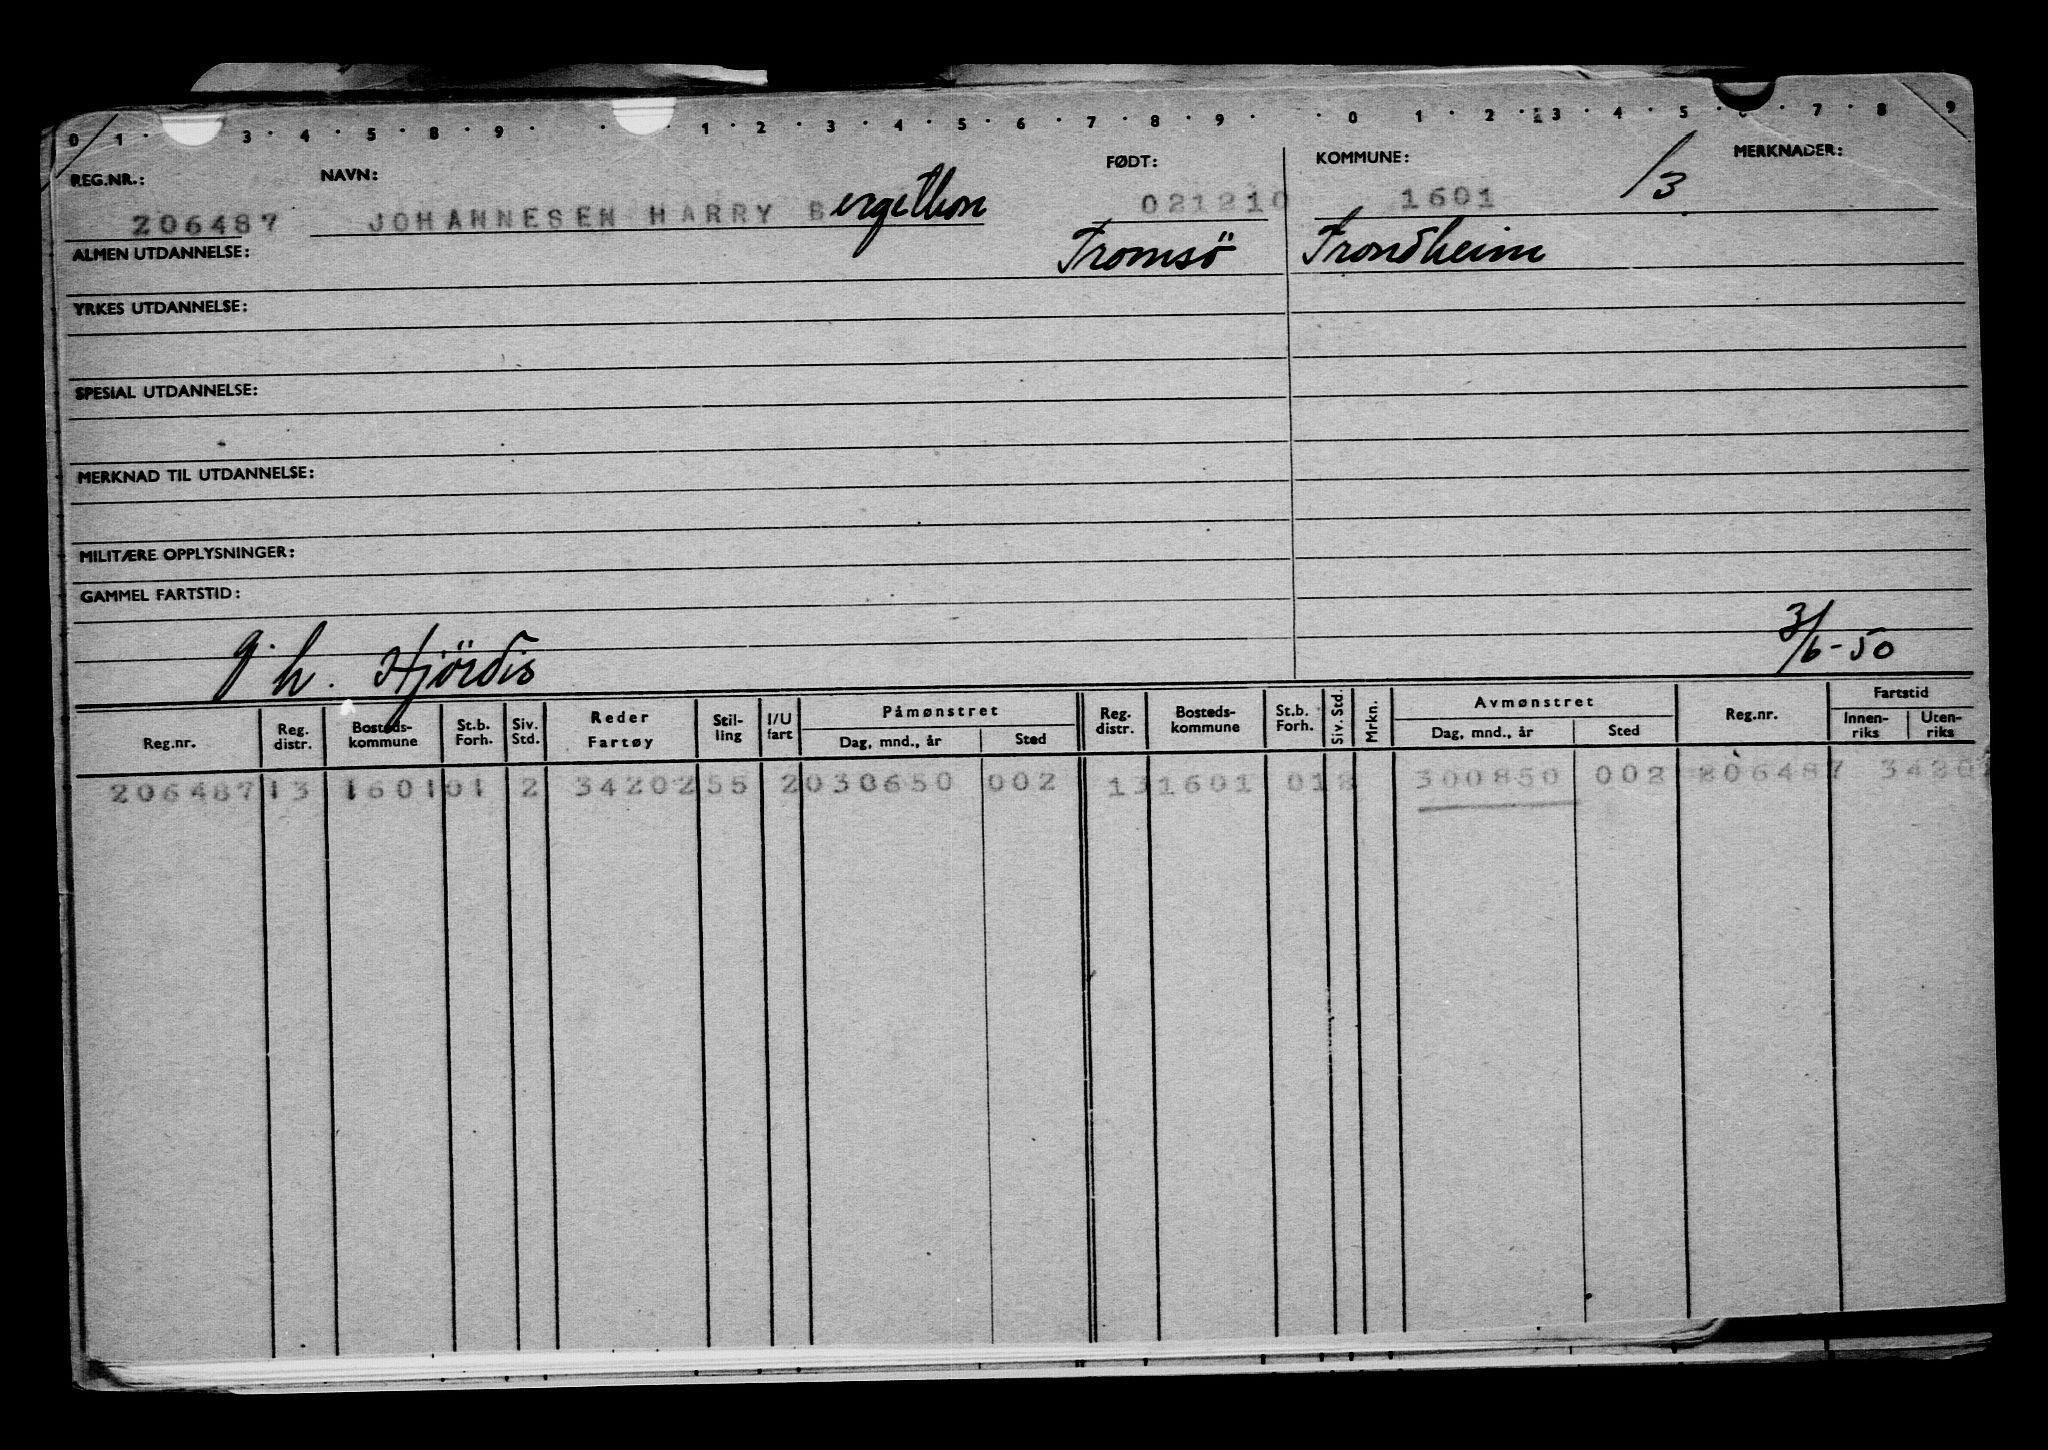 0 1 · 3 · 4 · 5 · 8 · 9 · · · 1 · 2 · 3 · 4 · 5 · 6 · 7 · 8 · 9 · · 0 · 1 · 2 · 3 · 4 · 5 · 6 · 7 · 8 · 9
REG.NR.: NAVN: FØDT: KOMMUNE: MERKNADER:
206487 JOHANNESEN HARRY Bergethon 021210 1601 /3
ALMEN UTDANNELSE: Tromsö Trondheim
YRKES UTDANNELSE:
SPESIAL UTDANNELSE:
MERKNAD TIL UTDANNELSE:
MILITÆRE OPPLYSNINGER:
GAMMEL FARTSTID:
g. h. Hjördis 3/6-50
Reg.nr. Reg. distr. Bosteds-kommune St.b. Forh. Siv. Std. Reder Fartøy Stil-ling I/U fart Påmønstret Dag, mnd., år Sted Reg. distr. Bosteds-kommune St.b. Forh. Siv. Std. Mrkn. Avmønstret Dag, mnd., år Sted Reg.nr. Fartstid Innen-riks Uten-riks
206487 13 1601 01 2 34202 55 2 030650 002 13 1601 01 300850 002 206487 3420